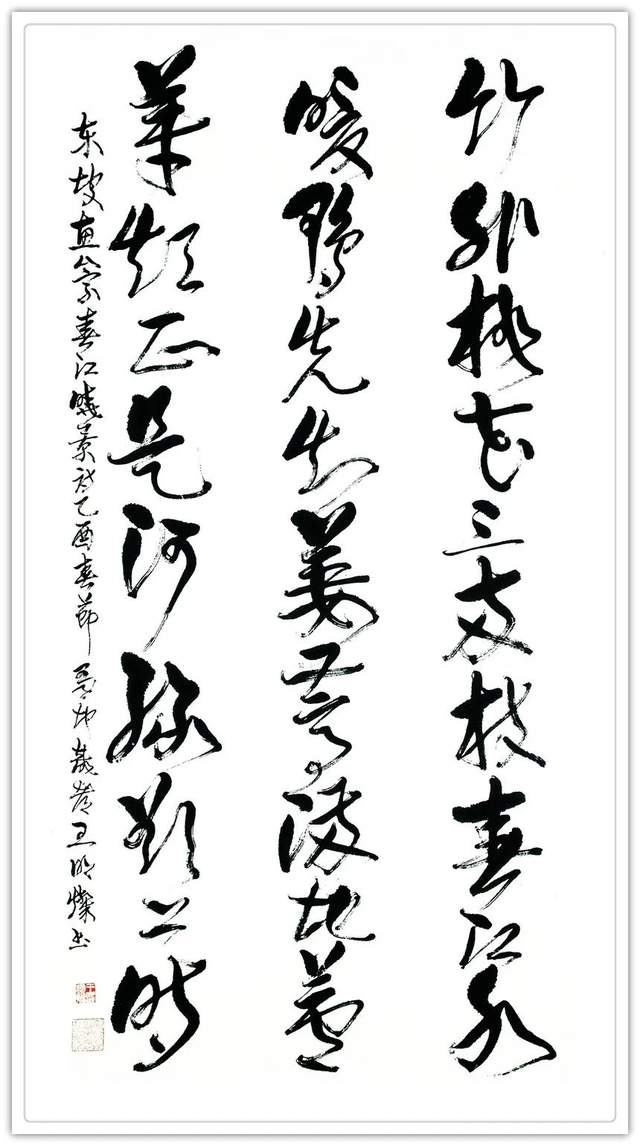 竹外桃花三两枝春江水
暖鸭先知蒌蒿满地芦
芽短正是河豚欲上时
东坡惠崇春江晓景诗乙酉春节王明灿书